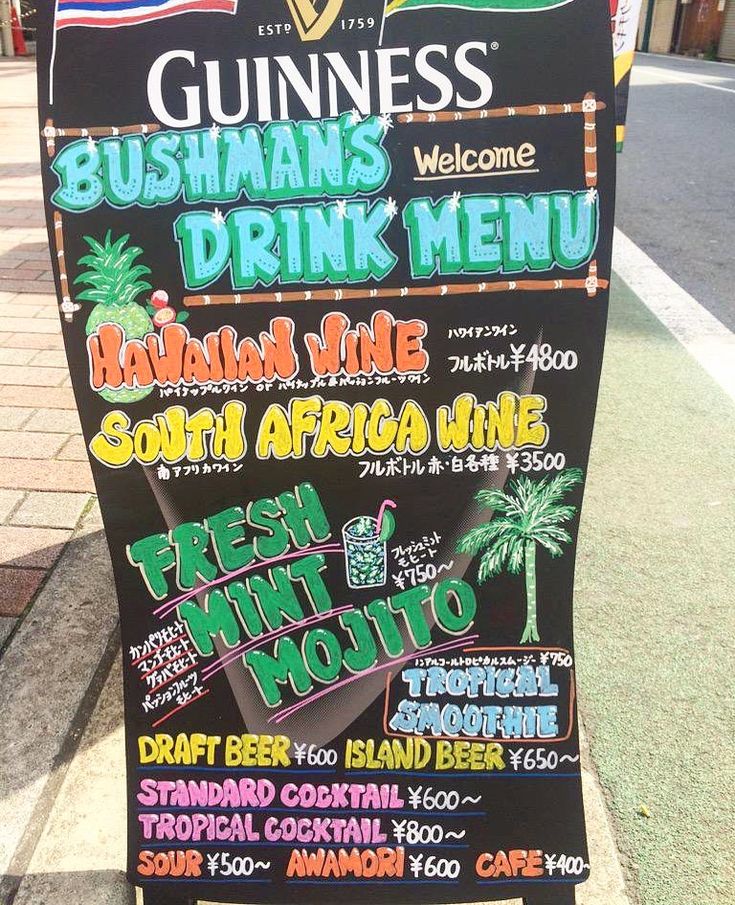 ESTD 1759
GUINNESS®
BUSHMAN'S
Welcome
DRINK MENU
HAWAIIAN WINE
ハワイアンワイン
フルボトル¥4800
パイナップルワイン or パイナップル&パッションフルーツワイン
SOUTH AFRICA WINE
南アフリカワイン
フルボトル 赤・白各種 ¥3500
FRESH
MINT
MOJITO
フレッシュミント
モヒート
¥750~
マンゴーモヒート
グァバモヒート
パッションフルーツ
モヒート
ノンアルコールトロピカルスムージー ¥750
TROPICAL
SMOOTHIE
DRAFT BEER ¥600 ISLAND BEER ¥650~
STANDARD COCKTAIL ¥600~
TROPICAL COCKTAIL ¥800~
SOUR ¥500~ AWAMORI ¥600 CAFE ¥400~